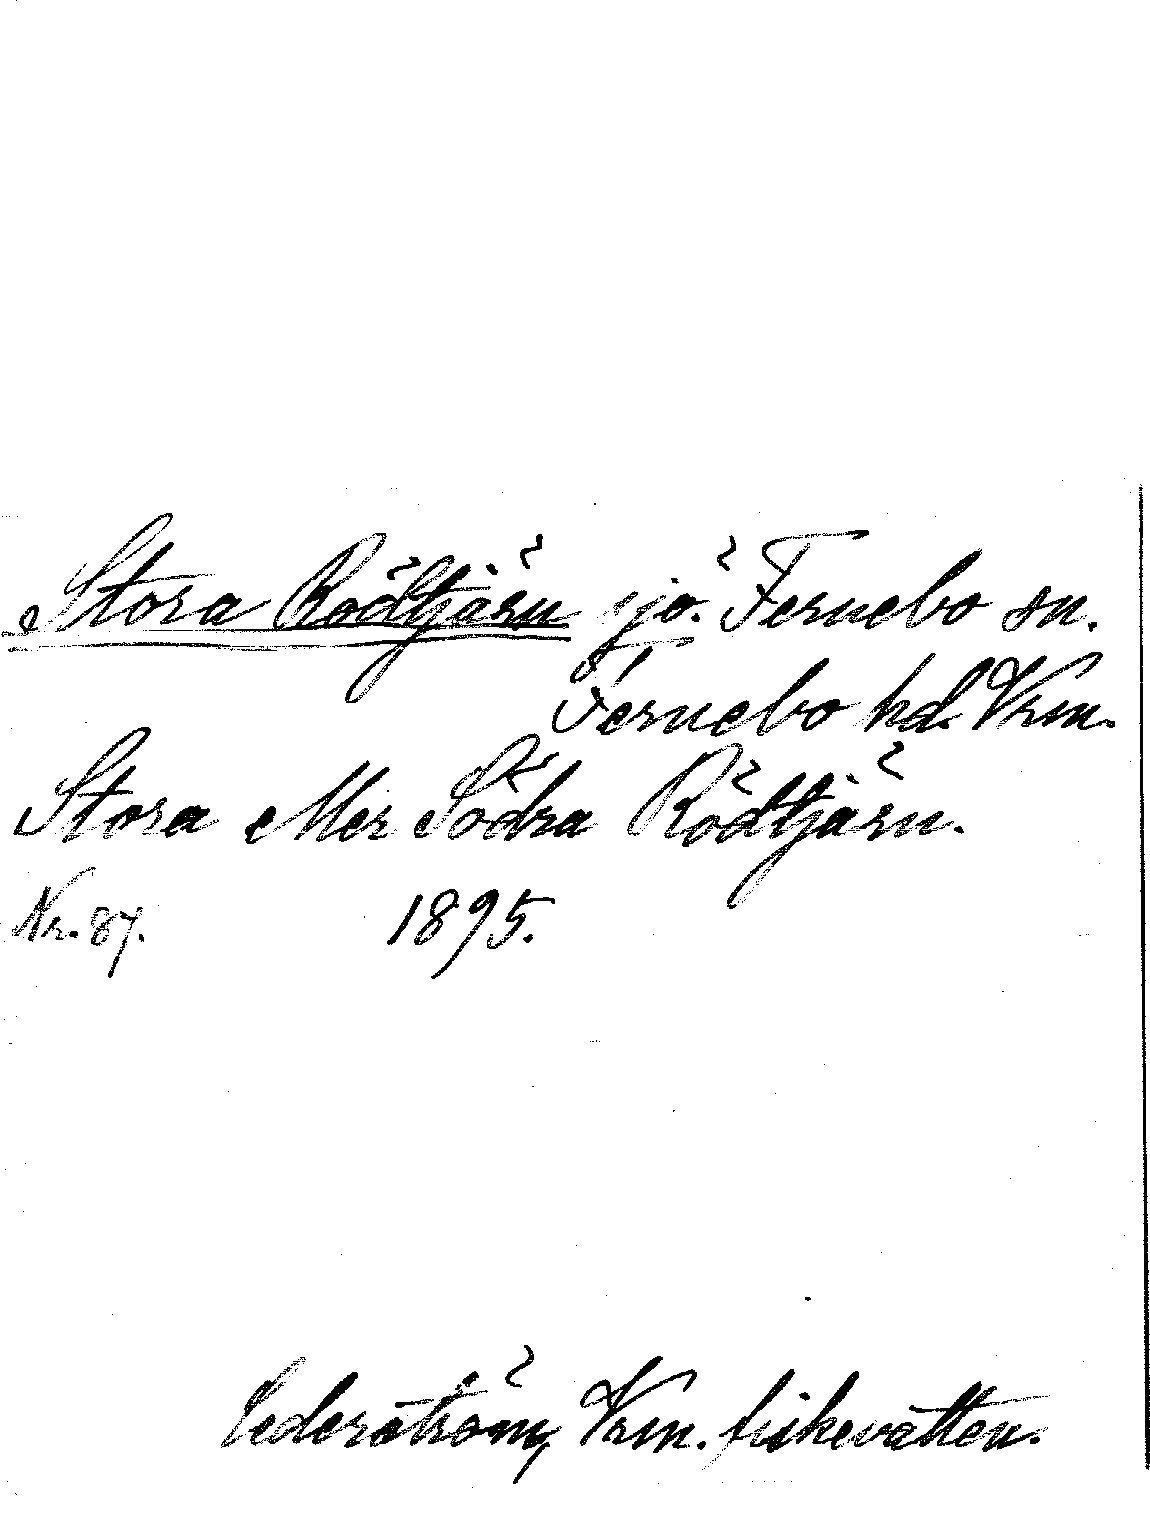 Stora Rödtjärn sjö. Fernebo sn.
Fernebo hd. Vrm.
Stora eller Södra Rödtjärn.
Nr. 87. 1895.
Cederström, Vrm. fiskevatten.